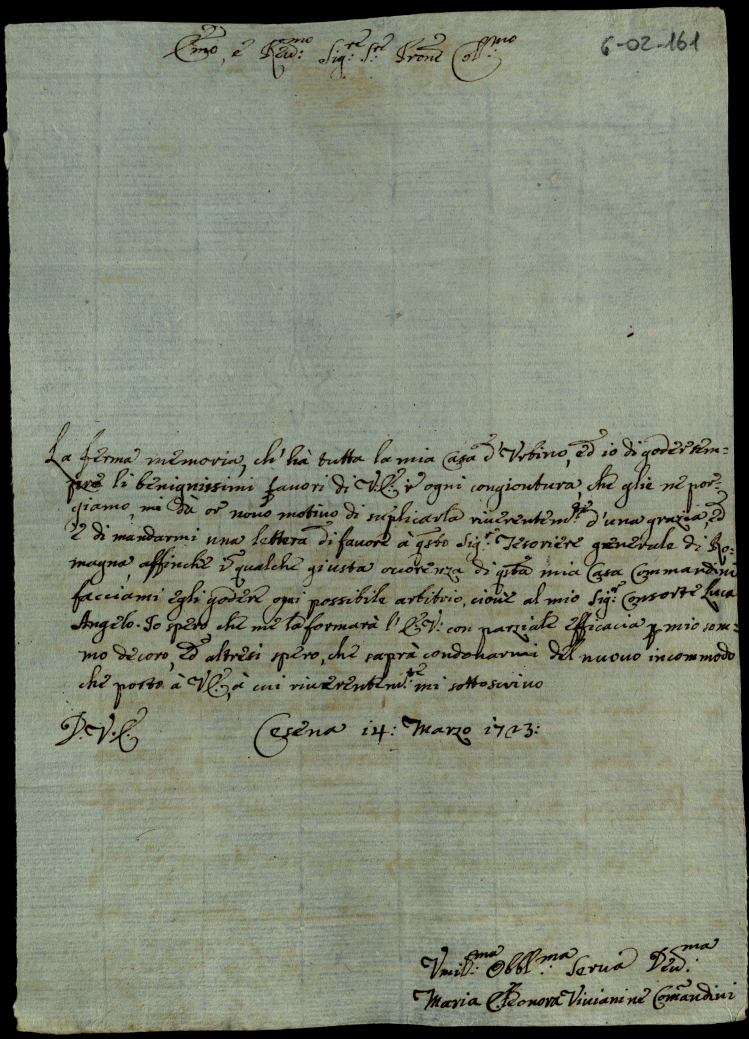 Emo, e Revd:mo Sig:re S:re Prone Coll:mo
6-02-161
La ferma memoria, ch' hà tutta la mia Casa d'Urbino, ed io di goder sem-
pre li benignissimi favori di V.E. in ogni congiontura, che glie ne por-
giamo, mi dà or novo motivo di suplicarla riverentem:te d'una grazia, ed
è di mandarmi una lettera di favore à qsto Sig:r Tesoriere generale di Ro-
magna, affinche in qualche giusta occorenza di qsta mia Casa Commandini
facciami egli godere ogni possibile arbitrio, cioue al mio Sig:r Consorte Luca
Angelo. Io spero che me la formarà l'E.V: con parziale efficacia p mio som-
mo decoro, ed altresi spero, che saprà condonarmi del nuovo incommodo
che porto à V.E., à cui riverentem:te mi sottoscrivo
D.V.E. Cesena 14: Marzo 1723:
Vmil:ma Obbl:ma Serva Dev:ma
Maria Eleonora Vivianine Comandini